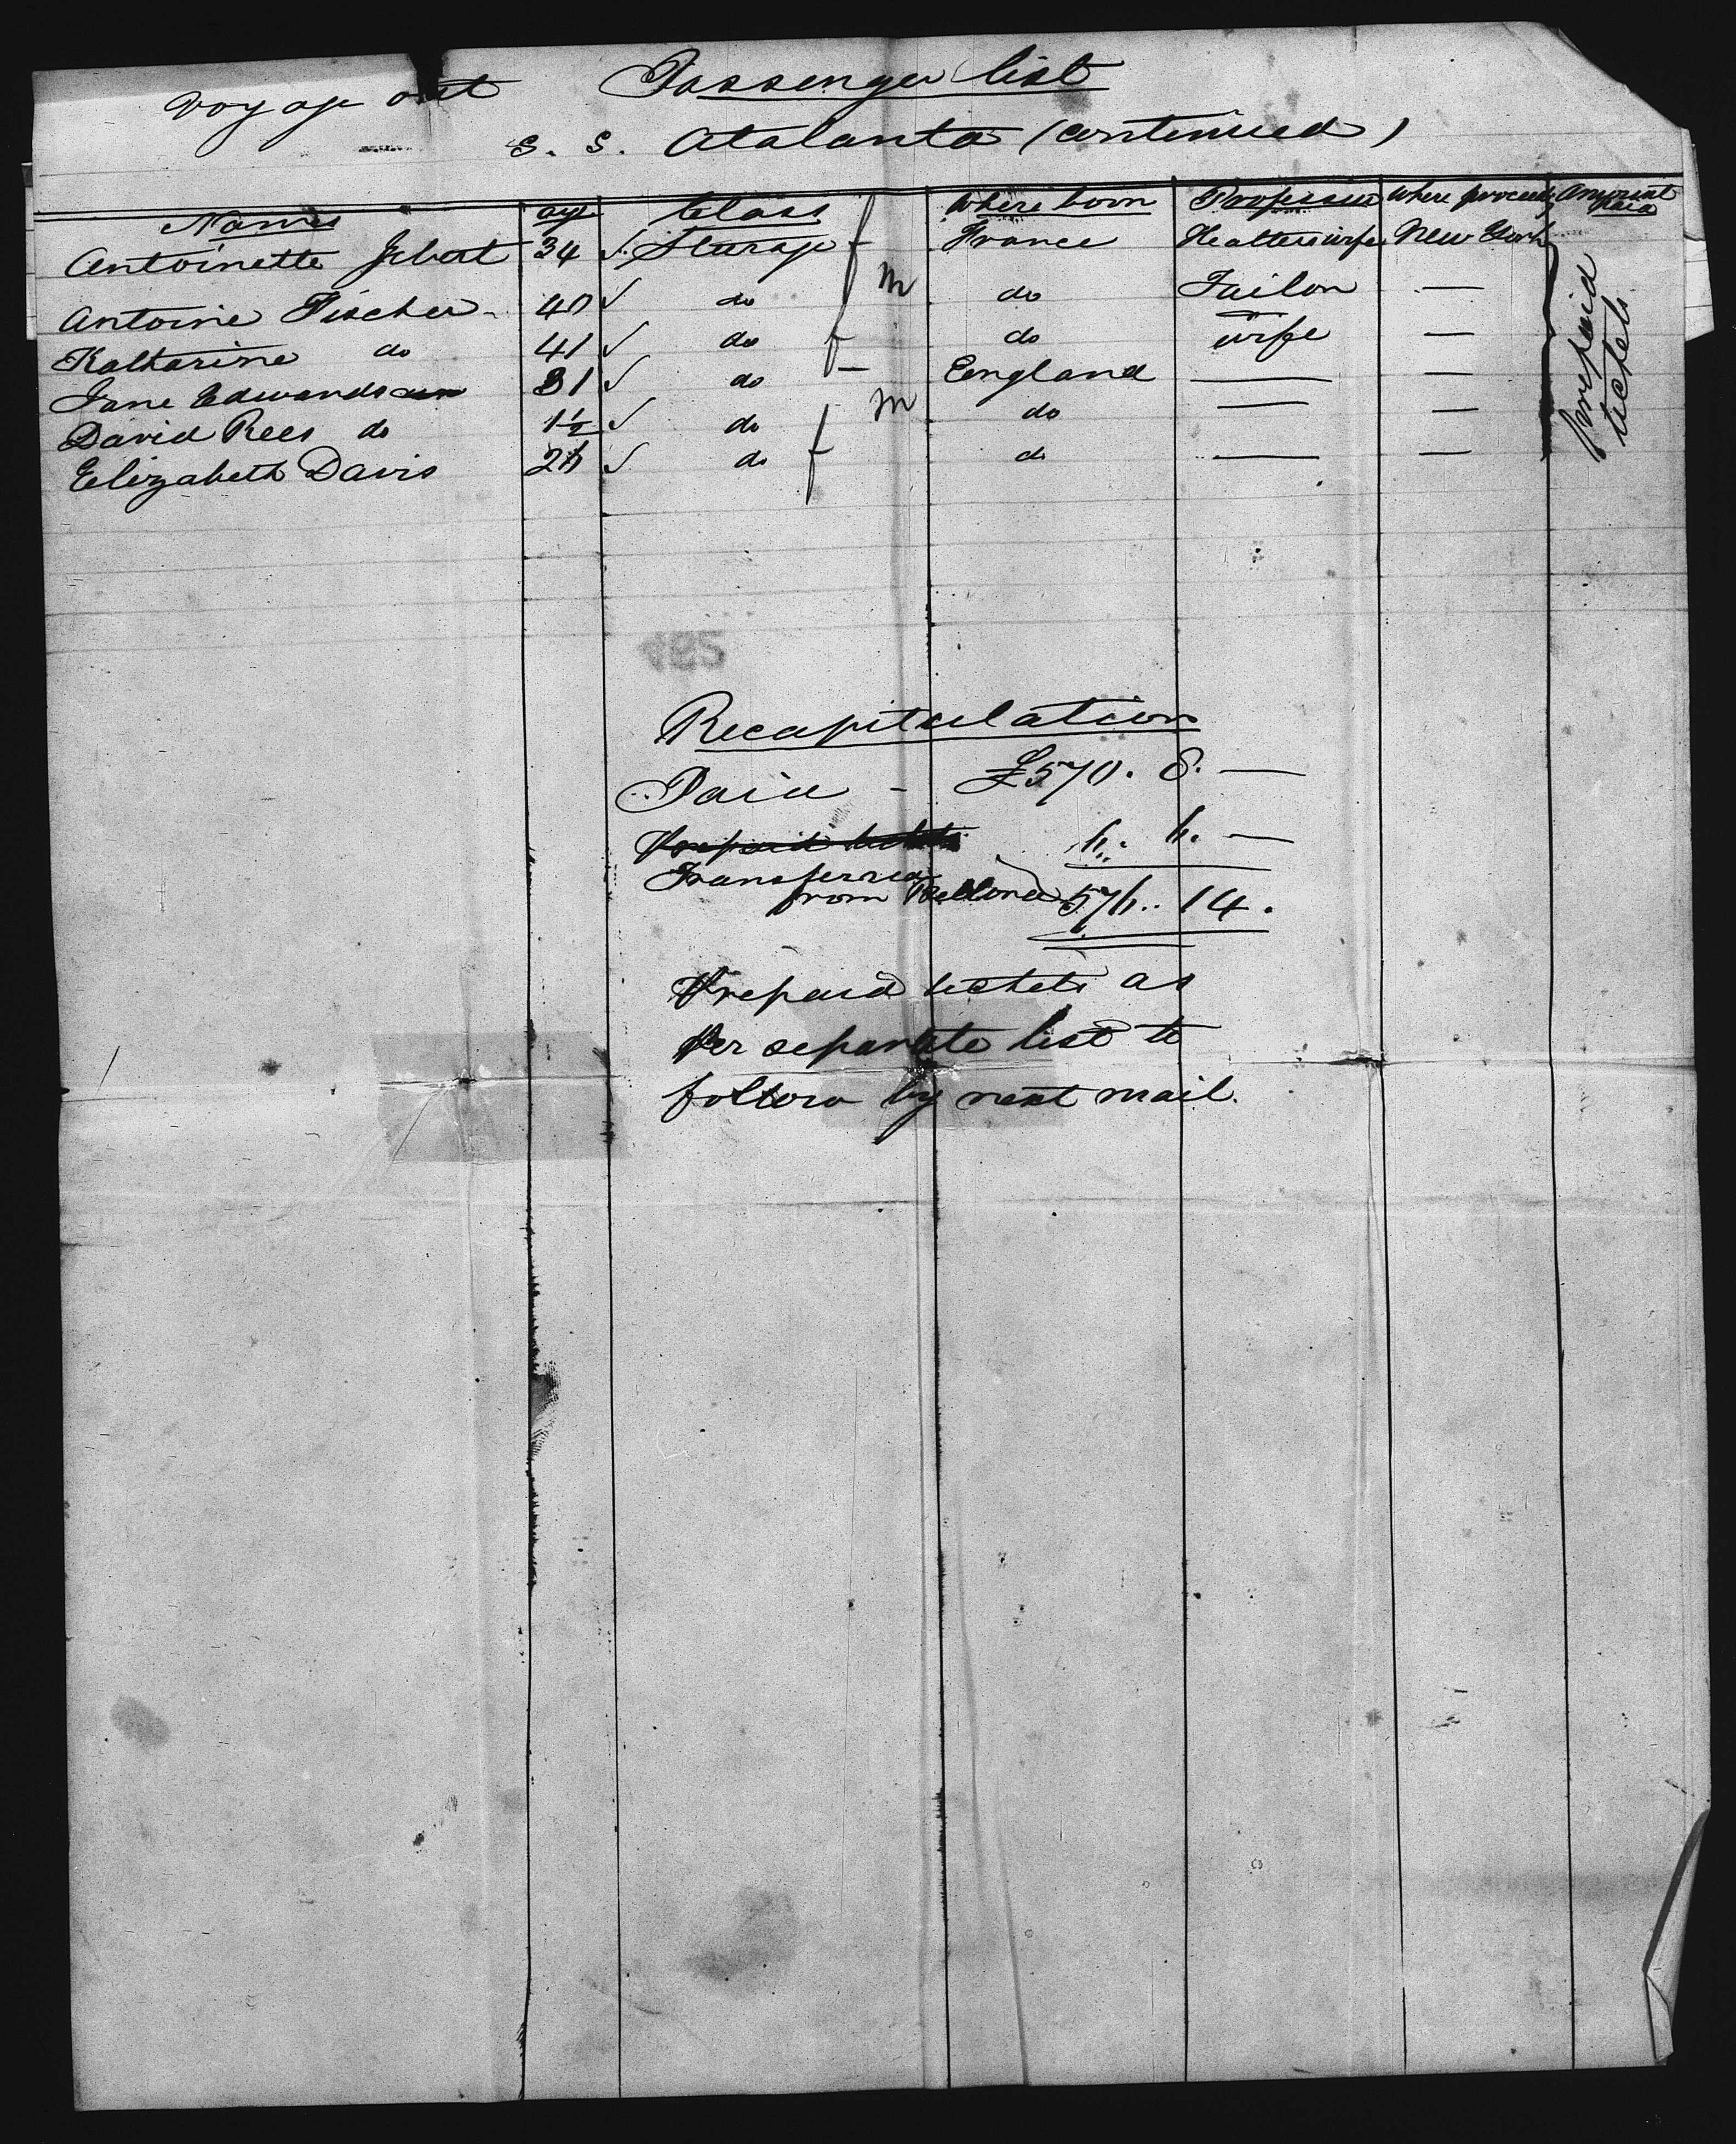 Voyage out Passenger list
S. S. Atalanta (continued)
Names age Class Where born Profession Where proceedg Amount paid
Antoinette 34 ✓ Steerage f France New York
Antoine Fischer 40 ✓ do m do Tailor —
Katharine do 41 ✓ do f do wife —
Jane Edwards 31 ✓ do f England — —
David Rees do 1½ ✓ do m do — —
Elizabeth Davis ✓ do f do — —
prepaid
tickets
Recapitulation
Paid - £570. 8. —
Prepaid tickets 6. 6. —
Transferred
from Bellona 576. 14.
Prepaid tickets as
per separate list to
follow by next mail.